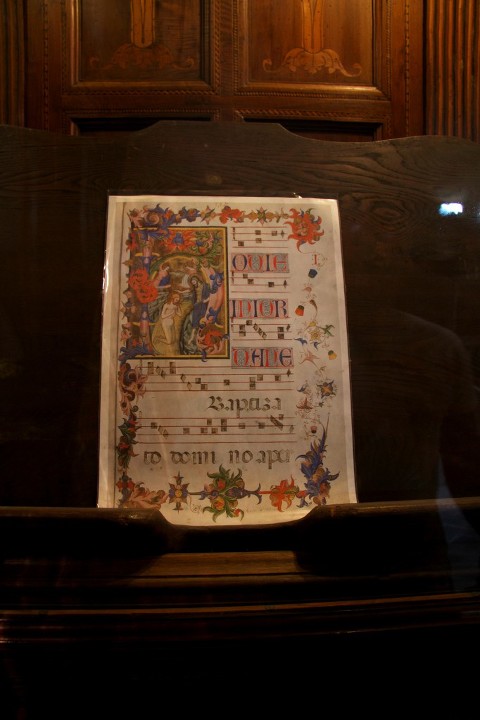 ODIE
INIOR
DANE
Baptiza
to domi no aper